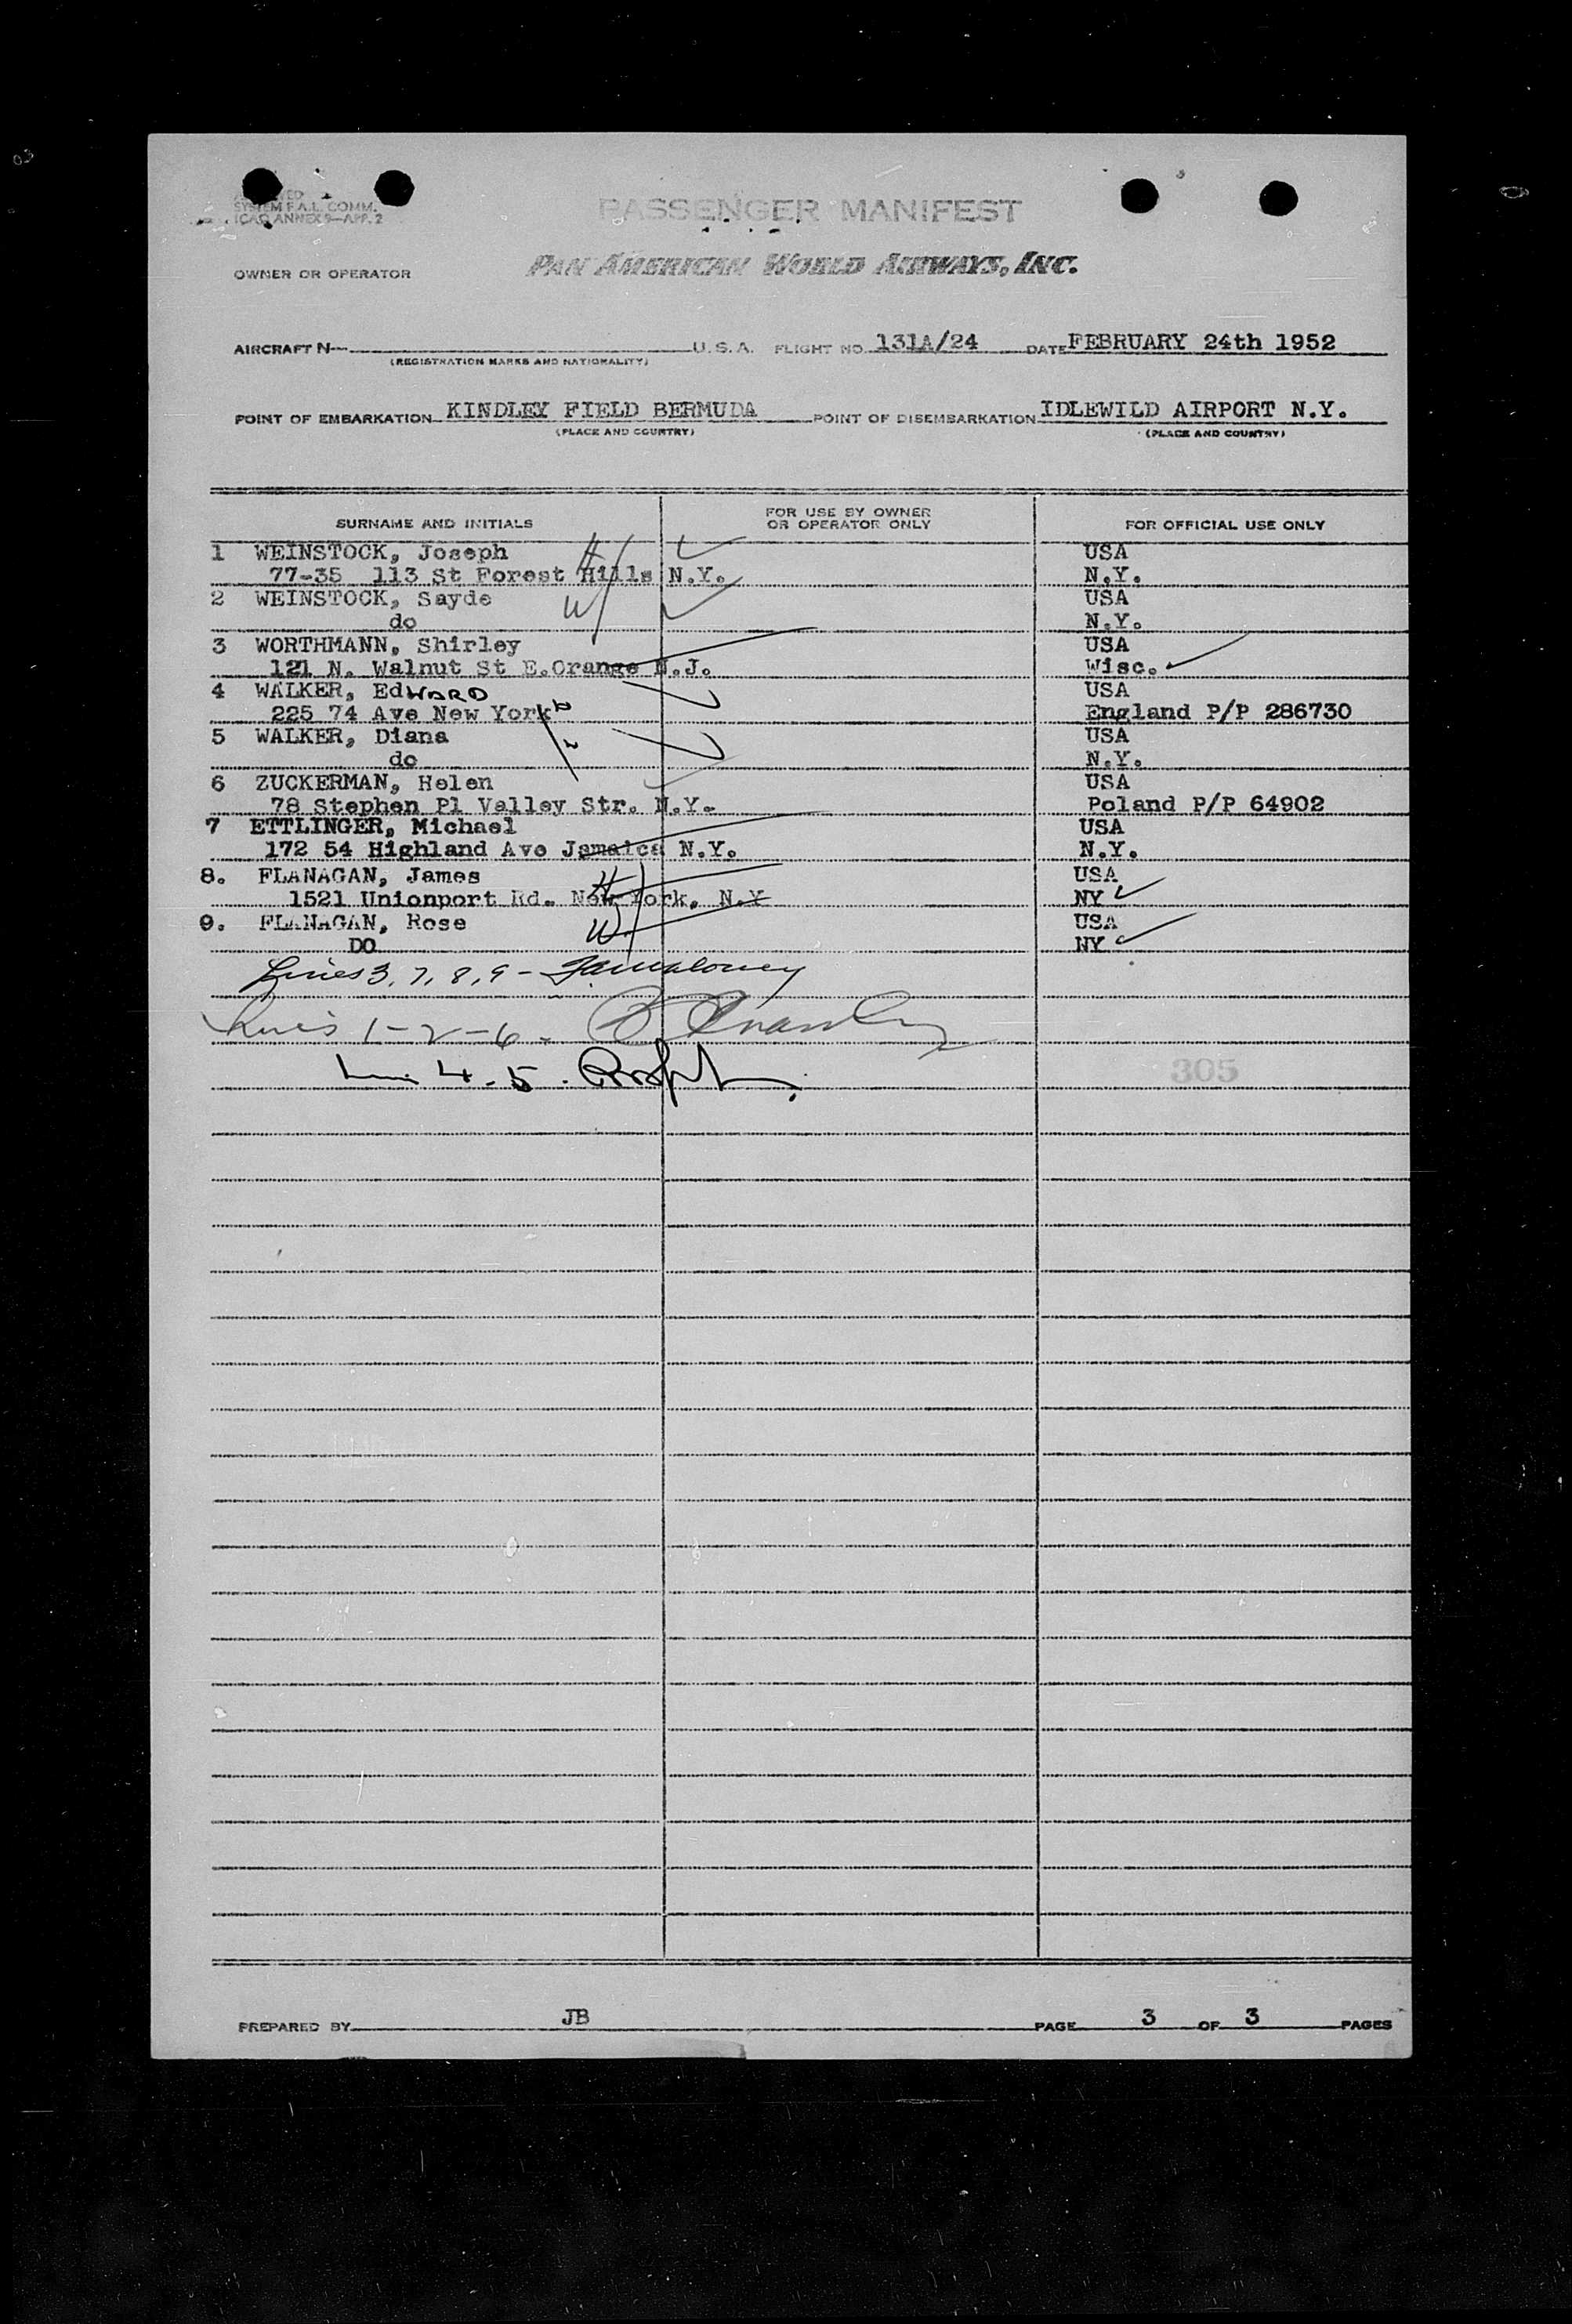 SYSTEM F.A.L. COMM.
ICAO ANNEX 9—APP. 2
PASSENGER MANIFEST
OWNER OR OPERATOR PAN AMERICAN WORLD AIRWAYS, INC.
AIRCRAFT N— U.S.A. FLIGHT NO. 131A/24 DATE FEBRUARY 24th 1952
(REGISTRATION MARKS AND NATIONALITY)
POINT OF EMBARKATION KINDLEY FIELD BERMUDA POINT OF DISEMBARKATION IDLEWILD AIRPORT N.Y.
(PLACE AND COUNTRY) (PLACE AND COUNTRY)
SURNAME AND INITIALS FOR USE BY OWNER OR OPERATOR ONLY FOR OFFICIAL USE ONLY
1 WEINSTOCK, Joseph H USA
77-35 113 St Forest Hills N.Y. N.Y.
2 WEINSTOCK, Sayde W USA
do N.Y.
3 WORTHMANN, Shirley USA
121 N. Walnut St E.Orange N.J. Wisc.
4 WALKER, EdWARD USA
225 74 Ave New York England P/P 286730
5 WALKER, Diana USA
do N.Y.
6 ZUCKERMAN, Helen USA
78 Stephen Pl Valley Str. N.Y. Poland P/P 64902
7 ETTLINGER, Michael USA
172 54 Highland Ave Jamaica N.Y. N.Y.
8. FLANAGAN, James H USA
1521 Unionport Rd. New York, N.Y NY
9. FLANAGAN, Rose W USA
DO NY
Lines 3, 7, 8, 9 -
Lines 1-2-6-
4-5.
305
PREPARED BY JB PAGE 3 OF 3 PAGES